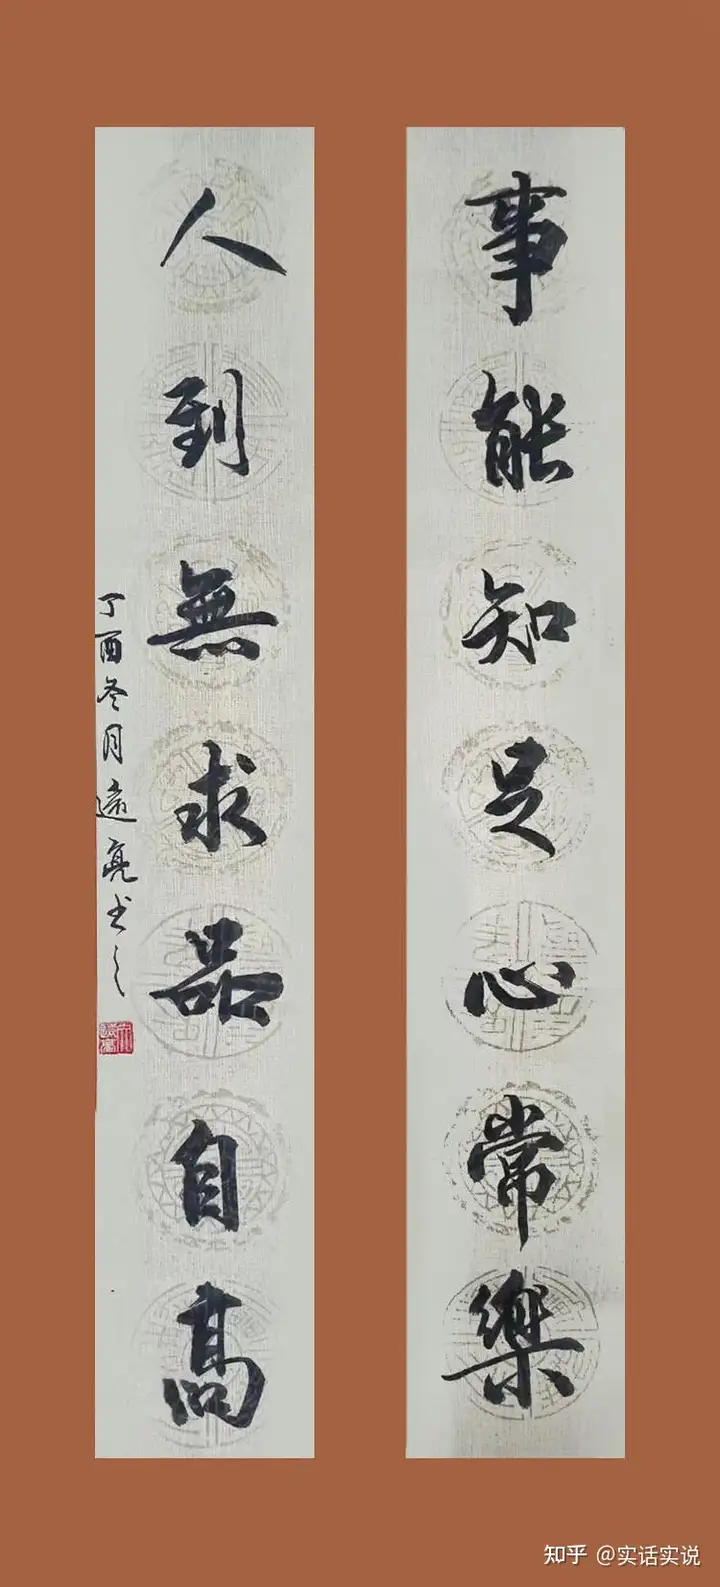 事能知足心常樂
人到無求品自高
丁酉冬月遠亮书之
知乎 @实话实说